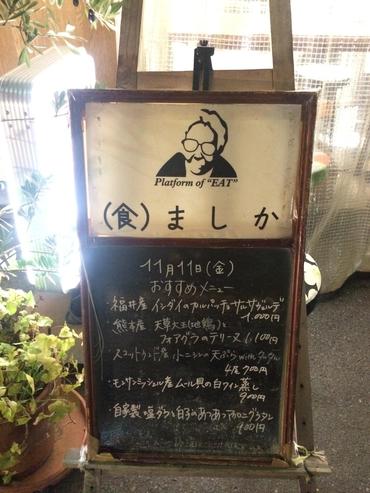 Platform of "EAT"
(食)ましか
11月11日(金)
おすすめメニュー
・福井産 イシダイのカルパッチョ サルサヴェルデ
1,000円
・熊本産 天草大王(地鶏)と
フォアグラのテリーヌ 1,100円
・スコットランド産 小ニシンの天ぷら with タルタル
4尾 700円
・モンサンミッシェル産 ムール貝の白ワイン蒸し
900円
・自家製 塩ダラと白子のあつあつマカログラタン
900円